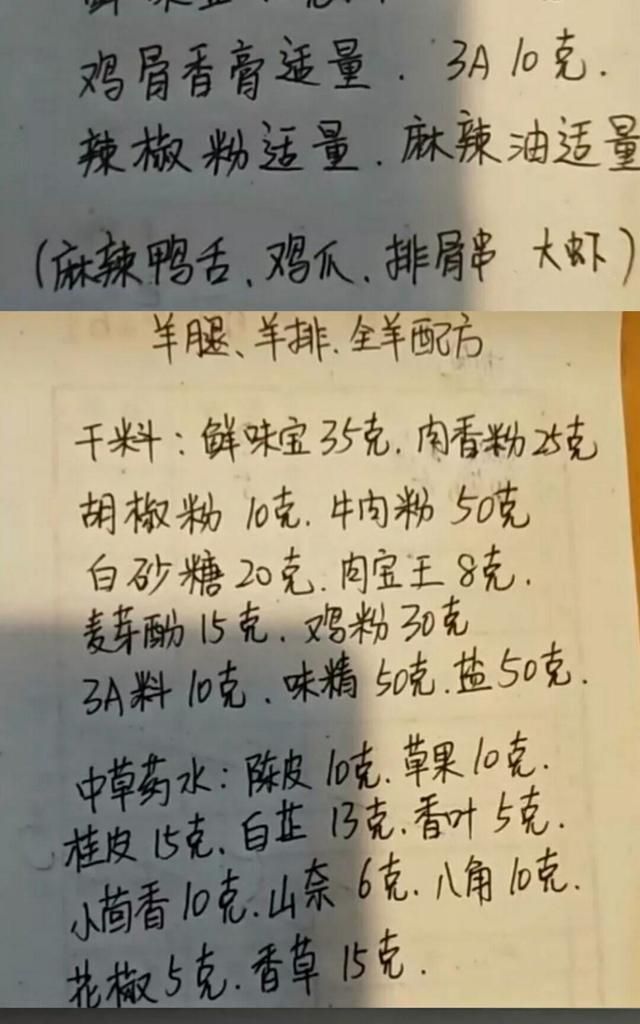 鸡骨香膏适量. 3A 10克.
辣椒粉适量. 麻辣油适量
(麻辣鸭舌、鸡爪、排骨串 大虾)
羊腿、羊排、全羊配方
干料: 鲜味宝35克. 肉香粉25克
胡椒粉 10克. 牛肉粉 50克
白砂糖20克. 肉宝王 8克.
麦芽酚15克. 鸡粉30克
3A料 10克. 味精 50克. 盐50克.
中草药水: 陈皮10克. 草果10克.
桂皮15克. 白芷 13克. 香叶5克.
小茴香10克. 山奈 6克. 八角10克.
花椒5克. 香草 15克.